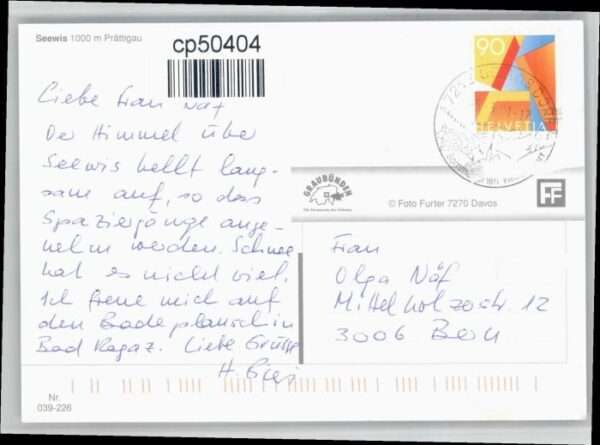 Seewis 1000 m Prättigau
cp50404
90
HELVETIA
Liebe Frau Näf
Der Himmel über
Seewis hellt lang-
sam auf, so dass
Spaziergänge ange-
nehm werden. Schnee
hat es nicht viel.
Ich freue mich auf
den Badeplausch in
Bad Ragaz. Liebe Grüsse
H.
GRAUBÜNDEN
© Foto Furter 7270 Davos
FF
Frau
Olga Näf
Mittelholzerstr. 12
3006 Bern
Nr.
039-226